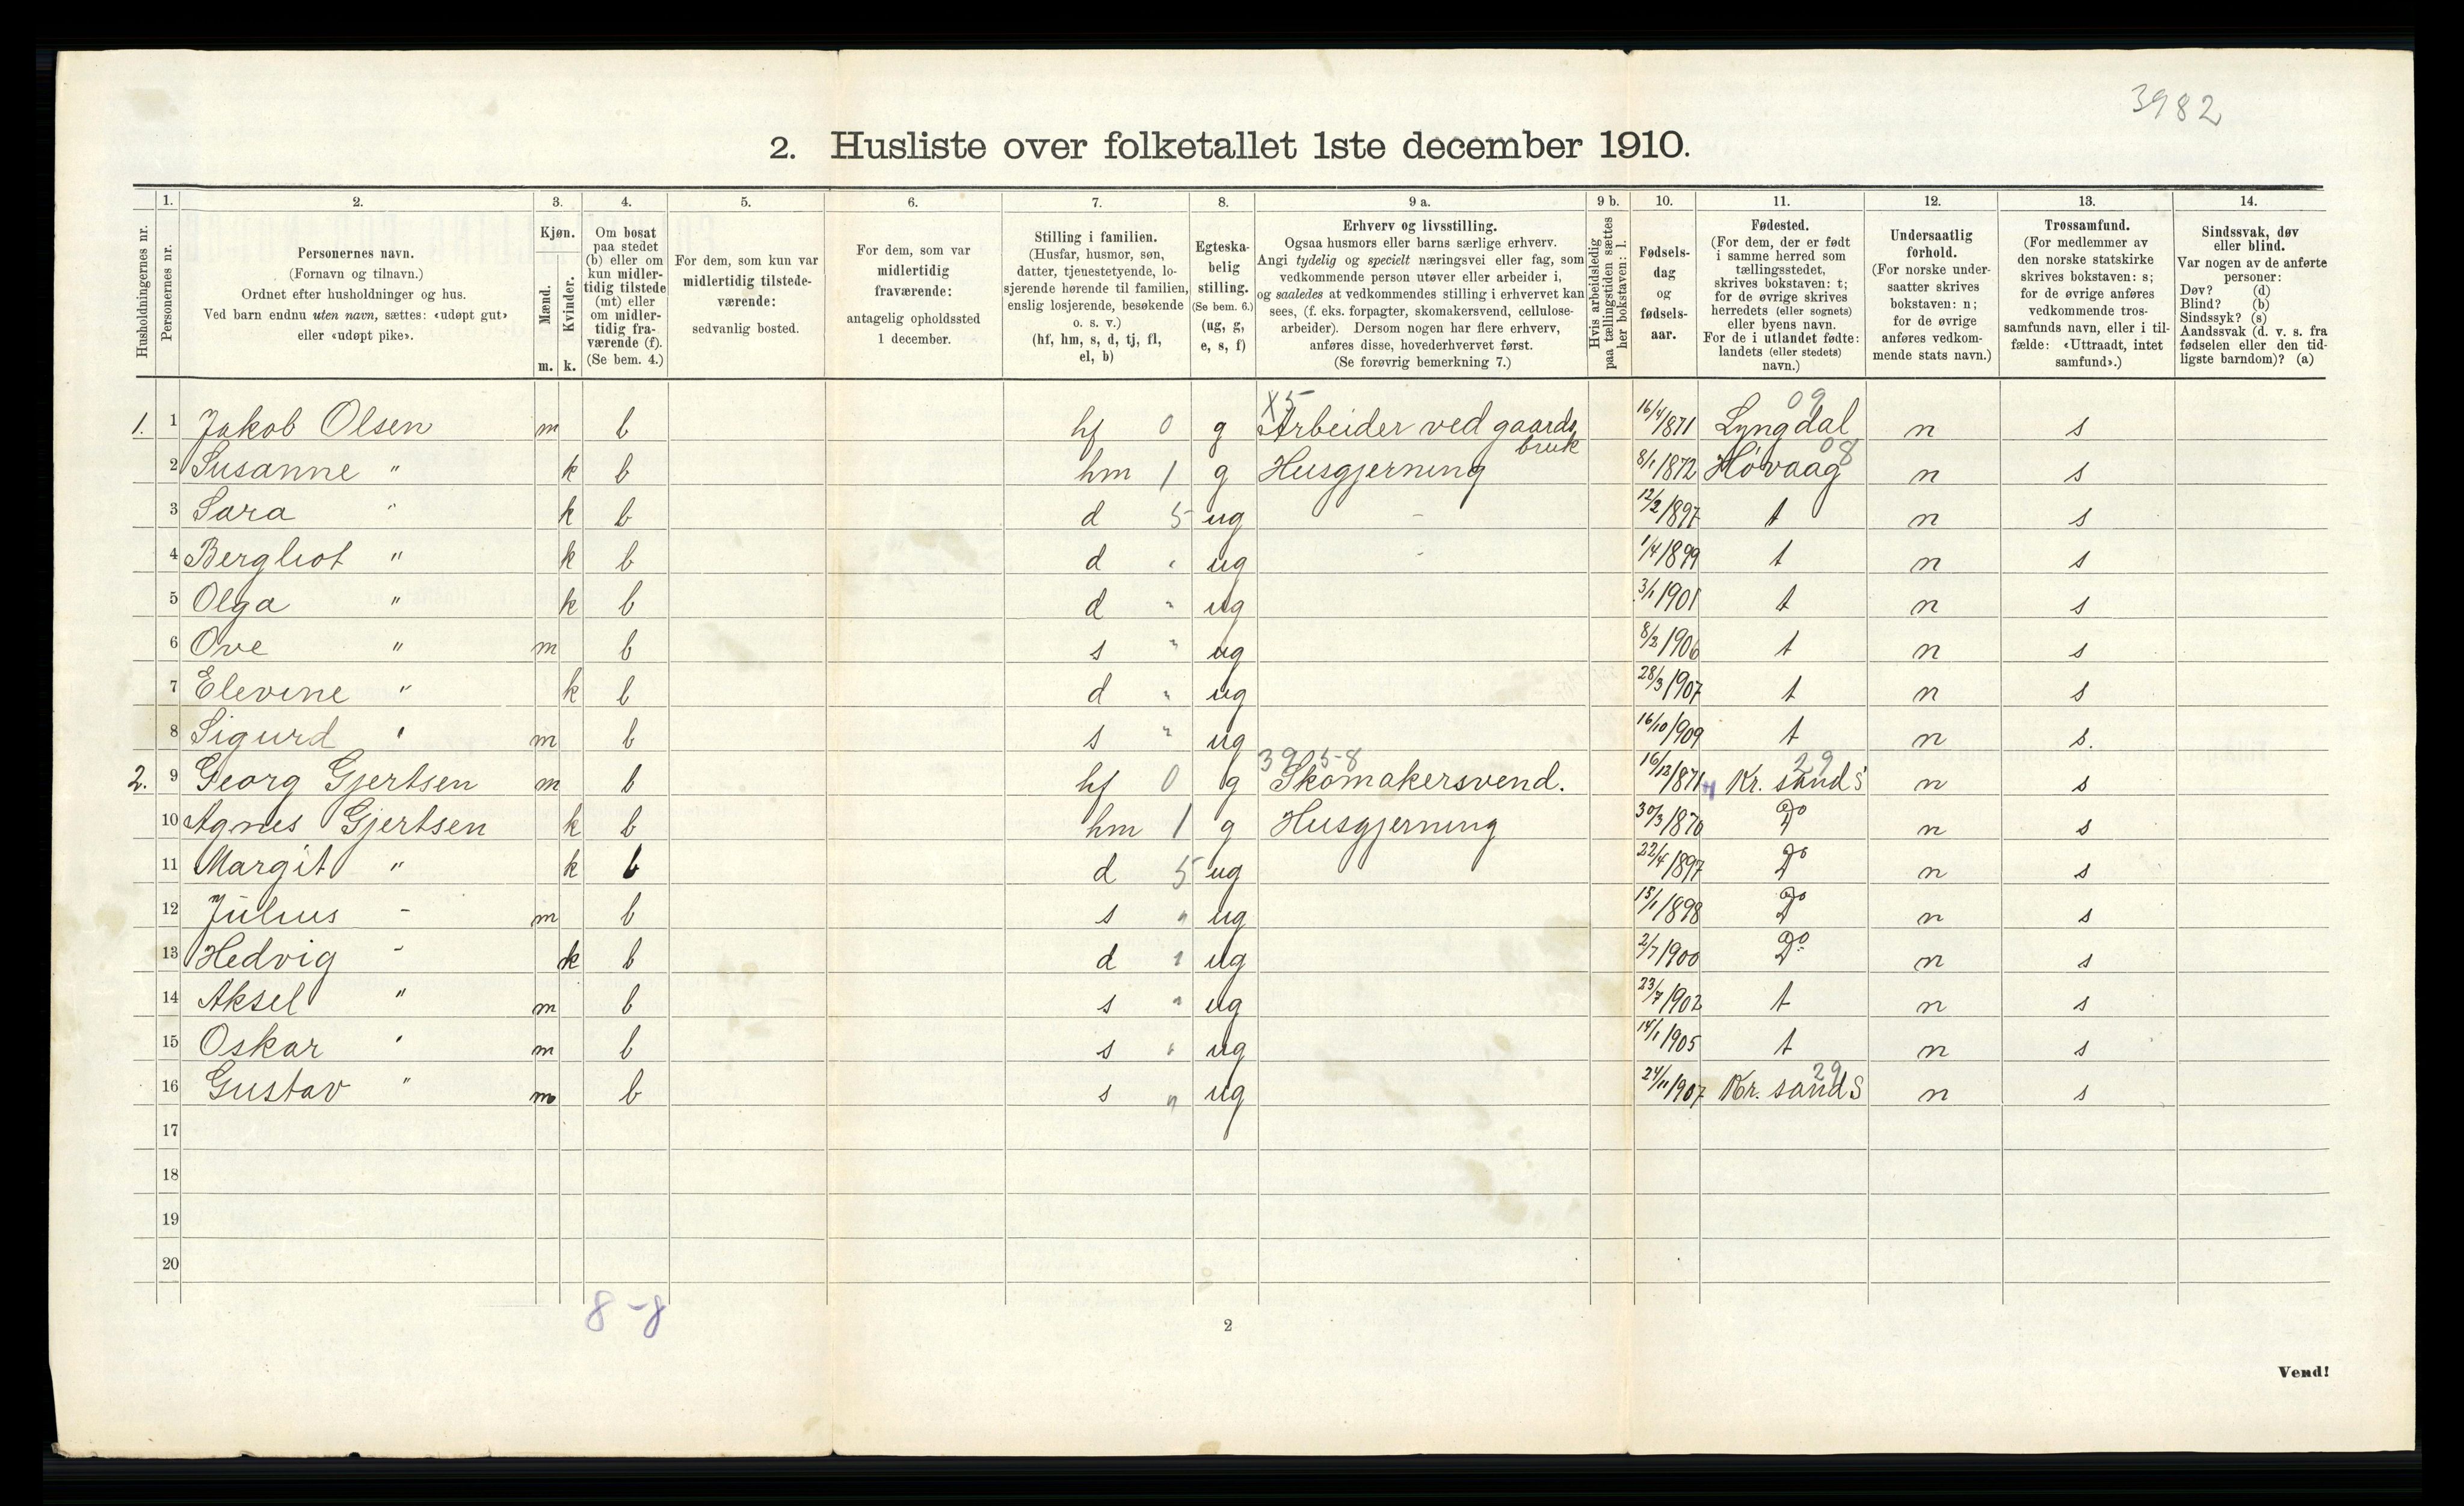 3982
2. Husliste over folketallet 1ste december 1910.
Husholdningernes nr.
1.
Personernes nr.
2.
Personernes navn.
(Fornavn og tilnavn.)
Ordnet efter husholdninger og hus.
Ved barn endnu uten navn, sættes: «udøpt gut»
eller «udøpt pike».
3.
Kjøn.
Mænd.
Kvinder.
m. k.
4.
Om bosat
paa stedet
(b) eller om
kun midler-
tidig tilstede
(mt) eller
om midler-
tidig fra-
værende (f).
(Se bem. 4.)
5.
For dem, som kun var
midlertidig tilstede-
værende:
sedvanlig bosted.
6.
For dem, som var
midlertidig
fraværende:
antagelig opholdssted
1 december.
7.
Stilling i familien.
(Husfar, husmor, søn,
datter, tjenestetyende, lo-
sjerende hørende til familien,
enslig losjerende, besøkende
o. s. v.)
(hf, hm, s, d, tj, fl,
el, b)
8.
Egteska-
belig
stilling.
(Se bem. 6.)
(ug, g,
e, s, f)
9 a.
Erhverv og livsstilling.
Ogsaa husmors eller barns særlige erhverv.
Angi tydelig og specielt næringsvei eller fag, som
vedkommende person utøver eller arbeider i,
og saaledes at vedkommendes stilling i erhvervet kan
sees, (f. eks. forpagter, skomakersvend, cellulose-
arbeider). Dersom nogen har flere erhverv,
anføres disse, hovederhvervet først.
(Se forøvrig bemerkning 7.)
9 b.
Hvis arbeidsledig
paa tællingstiden sættes
her bokstaven: l.
10.
Fødsels-
dag
og
fødsels-
aar.
11.
Fødested.
(For dem, der er født
i samme herred som
tællingsstedet,
skrives bokstaven: t;
for de øvrige skrives
herredets (eller sognets)
eller byens navn.
For de i utlandet fødte:
landets (eller stedets)
navn.)
12.
Undersaatlig
forhold.
(For norske under-
saatter skrives
bokstaven: n;
for de øvrige
anføres vedkom-
mende stats navn.)
13.
Trossamfund.
(For medlemmer av
den norske statskirke
skrives bokstaven: s;
for de øvrige anføres
vedkommende tros-
samfunds navn, eller i til-
fælde: «Uttraadt, intet
samfund».)
14.
Sindssvak, døv
eller blind.
Var nogen av de anførte
personer:
Døv? (d)
Blind? (b)
Sindssyk? (s)
Aandssvak (d. v. s. fra
fødselen eller den tid-
ligste barndom)? (a)
X5 09
1. 1 Jakob Olsen m b hf 0 g Arbeider ved gaards 16/4 1871 Lyngdal n s
bruk 08
2 Susanne " k b hm 1 g Husgjerning 8/1 1872 Høvaag n s
3 Sara " k b d 5 ug - 12/2 1897 t n s
4 Bergliot " k b d " ug - 1/4 1899 t n s
5 Olga " k b d " ug 3/1 1901 t n s
6 Ove " m b s " ug 8/2 1906 t n s
7 Elevine " k b d " ug 28/3 1907 t n s
8 Sigurd " m b s " ug 16/10 1909 t n s.
3905-8 29
2. 9 Georg Gjertsen m b hf 0 g Skomakersvend. 16/12 1871 Kr. sand S n s
10 Agnes Gjertsen k b hm 1 g Husgjerning 30/3 1870 Do n s
11 Margit " k b d 5 ug 22/4 1897 Do n s
12 Julius - m b s " ug 15/1 1898 Do n s
13 Hedvig - k b d " ug 2/7 1900 Do n s
14 Aksel " m b s " ug 23/7 1902 t n s
15 Oskar " m b s " ug 14/1 1905 t n s
29
16 Gustav " m b s " ug 24/11 1907 Kr. sand S n s
17
18
19
20
8-8
2
Vend!